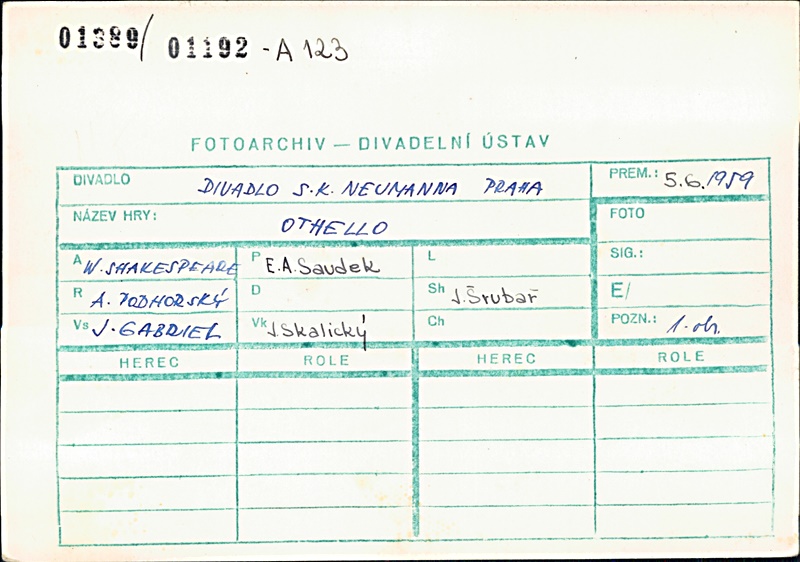 01389/ 01192 - A 123
FOTOARCHIV — DIVADELNÍ ÚSTAV
DIVADLO DIVADLO S.K. NEUMANNA PRAHA
PREM.: 5.6.1959
NÁZEV HRY: OTHELLO
FOTO
A W. SHAKESPEARE
P E.A. Saudek
L
SIG.:
R A. PODHORSKÝ
D
Sh J. Šrubař
E/
Vs J. GABRIEL
Vk J. Skalický
Ch
POZN.: 1. obr.
HEREC ROLE HEREC ROLE